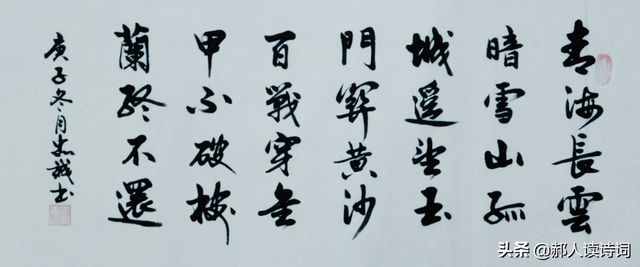 青海長雲
暗雪山孤
城遥望玉
門關黄沙
百戰穿金
甲不破樓
蘭終不還
庚子冬月忠诚书
头条 @郝人读诗词